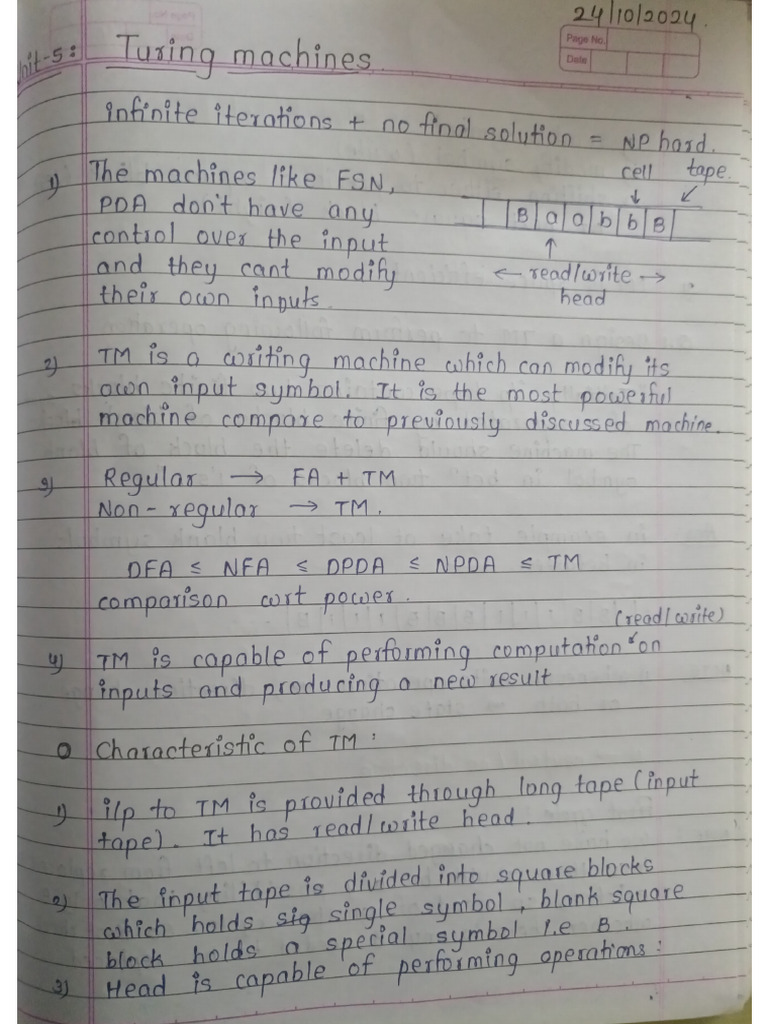 24/10/2024.
Page No.
Date
Unit-5: Turing machines
infinite iterations + no final solution = NP hard.
1) The machines like FSN,
PDA don't have any
control over the input
and they cant modify
their own inputs.
cell tape.
B a a b b B
← read/write →
head
2) TM is a writing machine which can modify its
own input symbol. It is the most powerful
machine compare to previously discussed machine.
3) Regular → FA + TM
Non-regular → TM.
DFA ≤ NFA ≤ DPDA ≤ NPDA ≤ TM
comparison wrt power.
(read/write)
4) TM is capable of performing computation on
inputs and producing a new result
O Characteristic of TM :
1) i/p to TM is provided through long tape (input
tape). It has read/write head.
2) The input tape is divided into square blocks
which holds sig single symbol, blank square
block holds a special symbol i.e B.
3) Head is capable of performing operations :